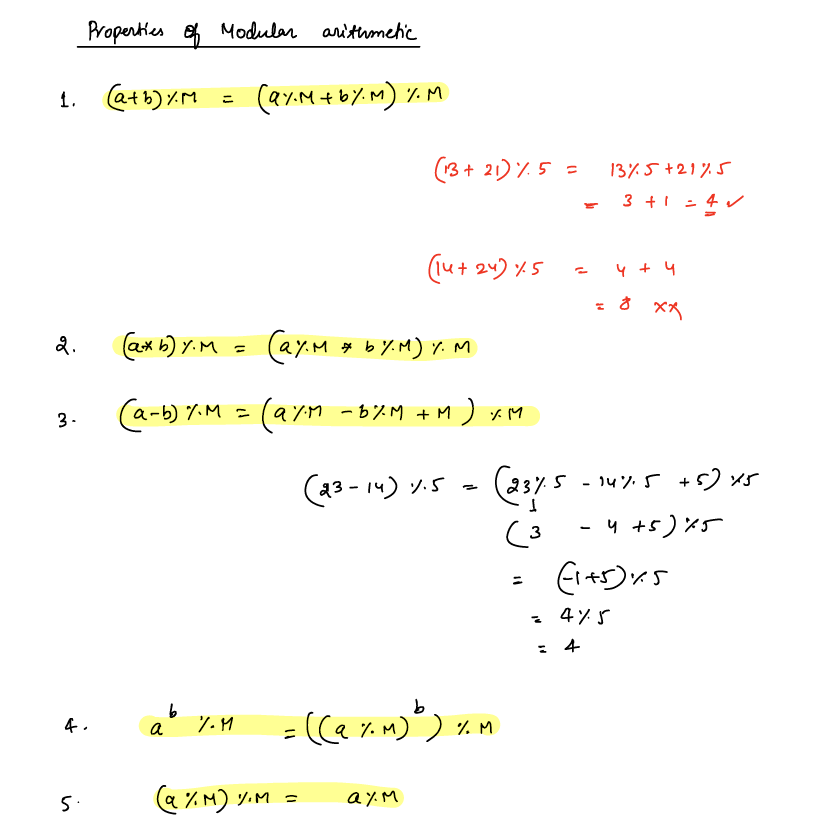 Properties of Modular arithmetic
1. (a+b)%M = (a%M + b%M) % M
(13 + 21) % 5 = 13%5 + 21%5
= 3 + 1 = 4 ✓
(14 + 24) % 5 = 4 + 4
= 8 xx
2. (a*b) % M = (a%M * b%M) % M
3. (a-b) % M = (a%M - b%M + M) % M
(23 - 14) % 5 = (23%5 - 14%5 + 5) %5
(3 - 4 +5) %5
= (-1+5)%5
= 4%5
= 4
4. a^b % M = ((a % M)^b) % M
5. (a % M) % M = a%M